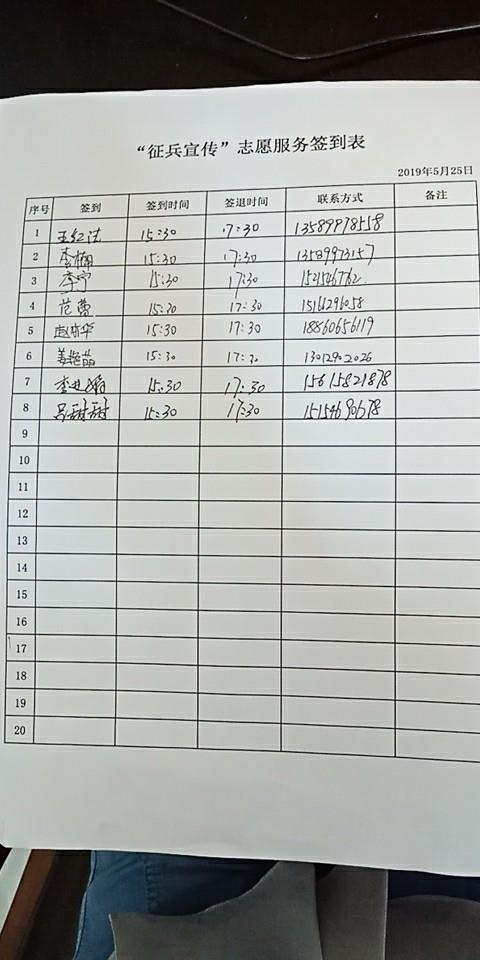 “征兵宣传”志愿服务签到表
2019年5月25日
序号 签到 签到时间 签退时间 联系方式 备注
1 王红 15:30 17:30 13589978558
2 李楠 15:30 17:30 13589973157
3 李宁 15:30 17:30
4 范蕾 15:30 17:30
5 15:30 17:30 18860656119
6 姜艳茹 15:30 17:30
7 李 娟 15:30 17:30 15615821878
8 吕甜甜 15:30 17:30 15154690678
9
10
11
12
13
14
15
16
17
18
19
20